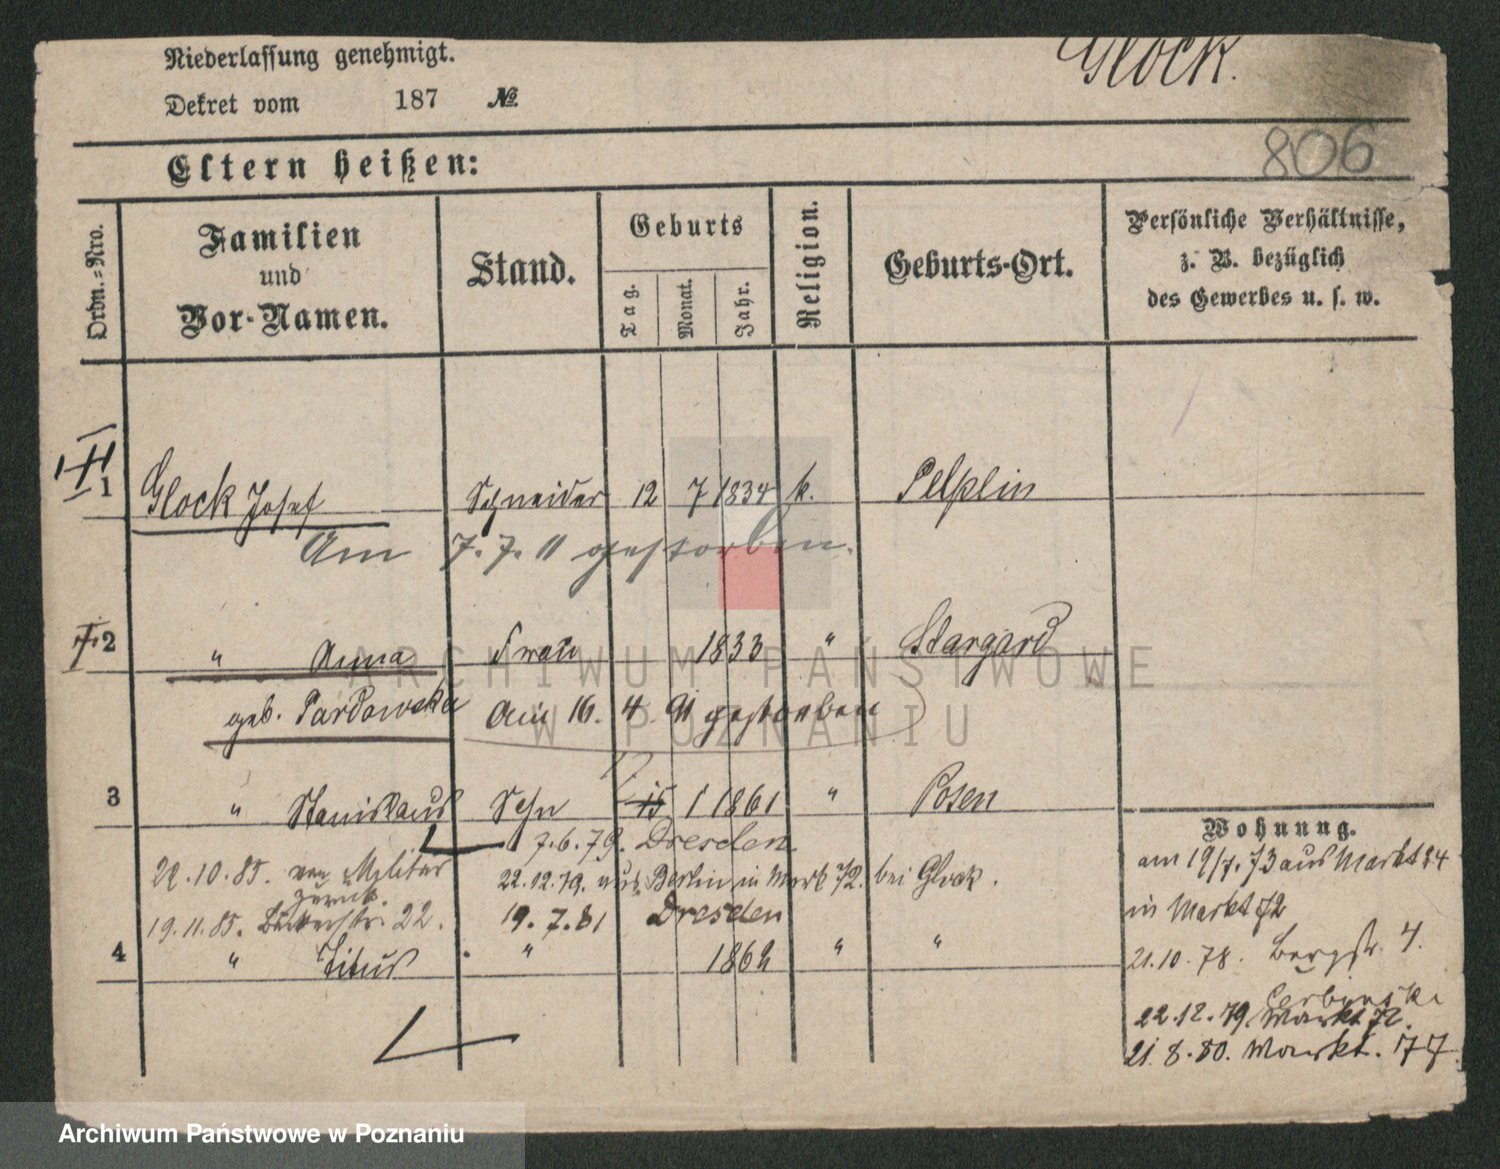 Niederlassung genehmigt.
Glock.
Dekret vom 187 №
806
Eltern heißen:
Ordn.=Nro.
Familien
und
Vor-Namen.
Stand.
Geburts
Tag.
Monat.
Jahr.
Religion.
Geburts-Ort.
Persönliche Verhältnisse,
z. B. bezüglich
des Gewerbes u. s. w.
1 Glock Josef Schneider 12 7 1834 k. Pelplin
Am 7. 7. 11 gestorben.
2 " Anna Frau 1833 " Stargard
geb. Pardowska Am 16. 4. 91 gestorben
3 " Stanislaus Sohn 15 1 1861 " Posen
7.6.79. Dresden.
22.10.85. von Militär 22.12.79. aus Berlin in Mark 72. bei Glock.
zurück.
19.11.85. 22. 19.7.81 Dresden
4 " Titus " 1862 " "
Wohnung.
am 19/7.73 aus Markt 24
in Markt 72
21.10.78. Bergstr. 4.
22.12.79. Markt 72.
21.8.80. Markt. 77.
ARCHIWUM PAŃSTWOWE
W POZNANIU
Archiwum Państwowe w Poznaniu